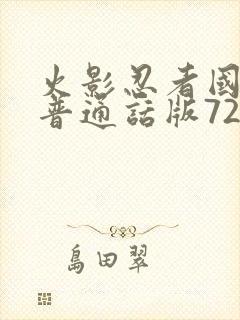 火影忍者國
普通話版72
島田翠